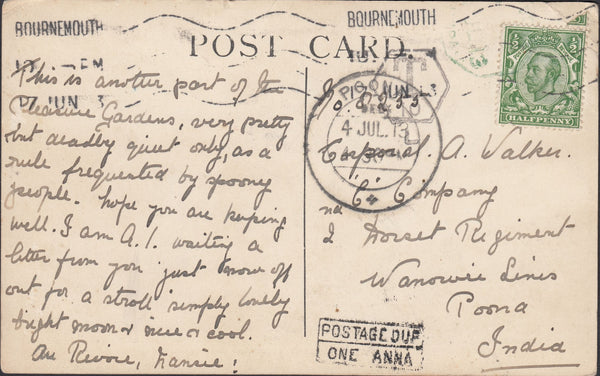 BOURNEMOUTH
BOURNEMOUTH
POST CARD.
17 JUN 13
JUN 13
HALFPENNY
T
4 JUL. 13
This is another part of the
Pleasure Gardens, very pretty
but deadly quiet only, as a
rule frequented by spooney
people. hope you are keeping
well. I am A.1. waiting a
letter from you just now off
out for a stroll simply lovely
bright moon & nice & cool.
Au Revoir,
8233
Corporal. A. Walker.
"G" Company
2nd Dorset Regiment
Wanowrie Lines
Poona
India
POSTAGE DUE
ONE ANNA